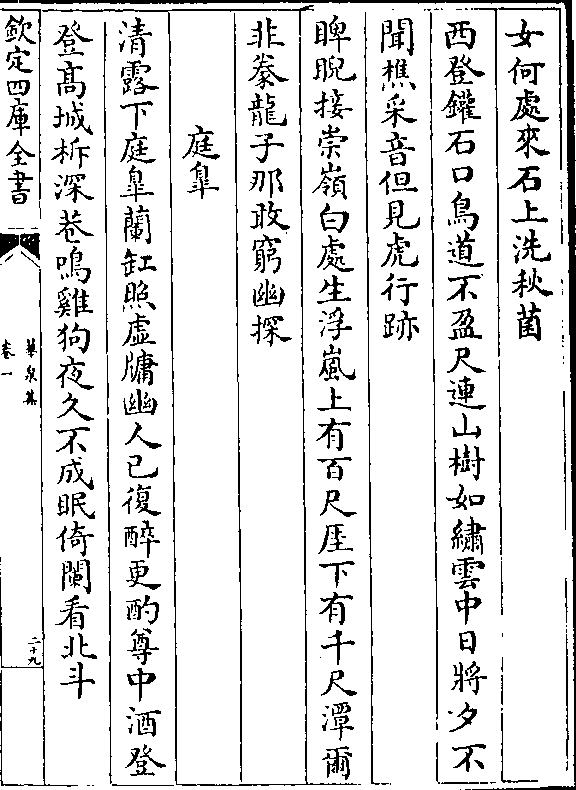 女何處來石上洗秋菌
西登鑵石口鳥道不盈尺連山樹如繡雲中日將夕不
聞樵采音但見虎行跡
睥睨接崇嶺白處生浮嵐上有百尺厓下有千尺潭爾
非豢龍子那敢窮幽探
庭臯
清露下庭臯蘭缸照虛牖幽人已復醉更酌尊中酒登
登髙城柝深巷鳴雞狗夜久不成眠倚闌看北斗
欽定四庫全書
華泉集
卷一
二十九